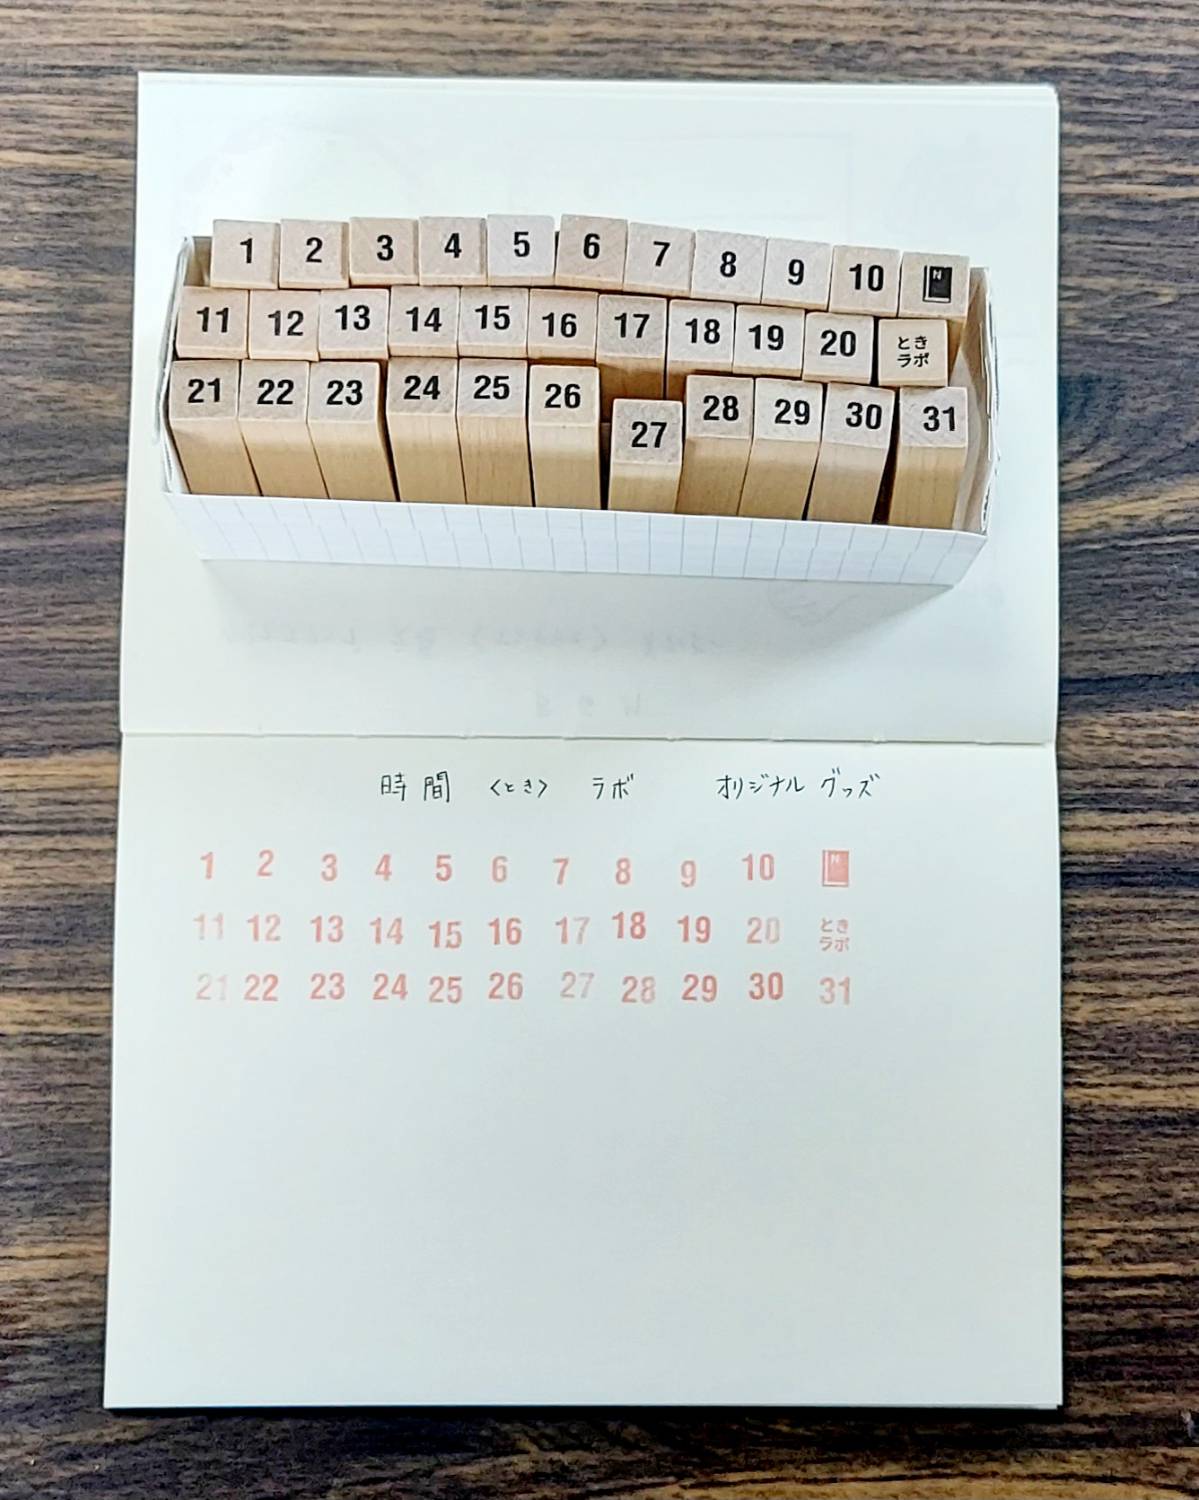 1 2 3 4 5 6 7 8 9 10 N
11 12 13 14 15 16 17 18 19 20 とき
ラボ
21 22 23 24 25 26 27 28 29 30 31
時間 〈とき〉 ラボ オリジナルグッズ
1 2 3 4 5 6 7 8 9 10 N
11 12 13 14 15 16 17 18 19 20 とき
ラボ
21 22 23 24 25 26 27 28 29 30 31